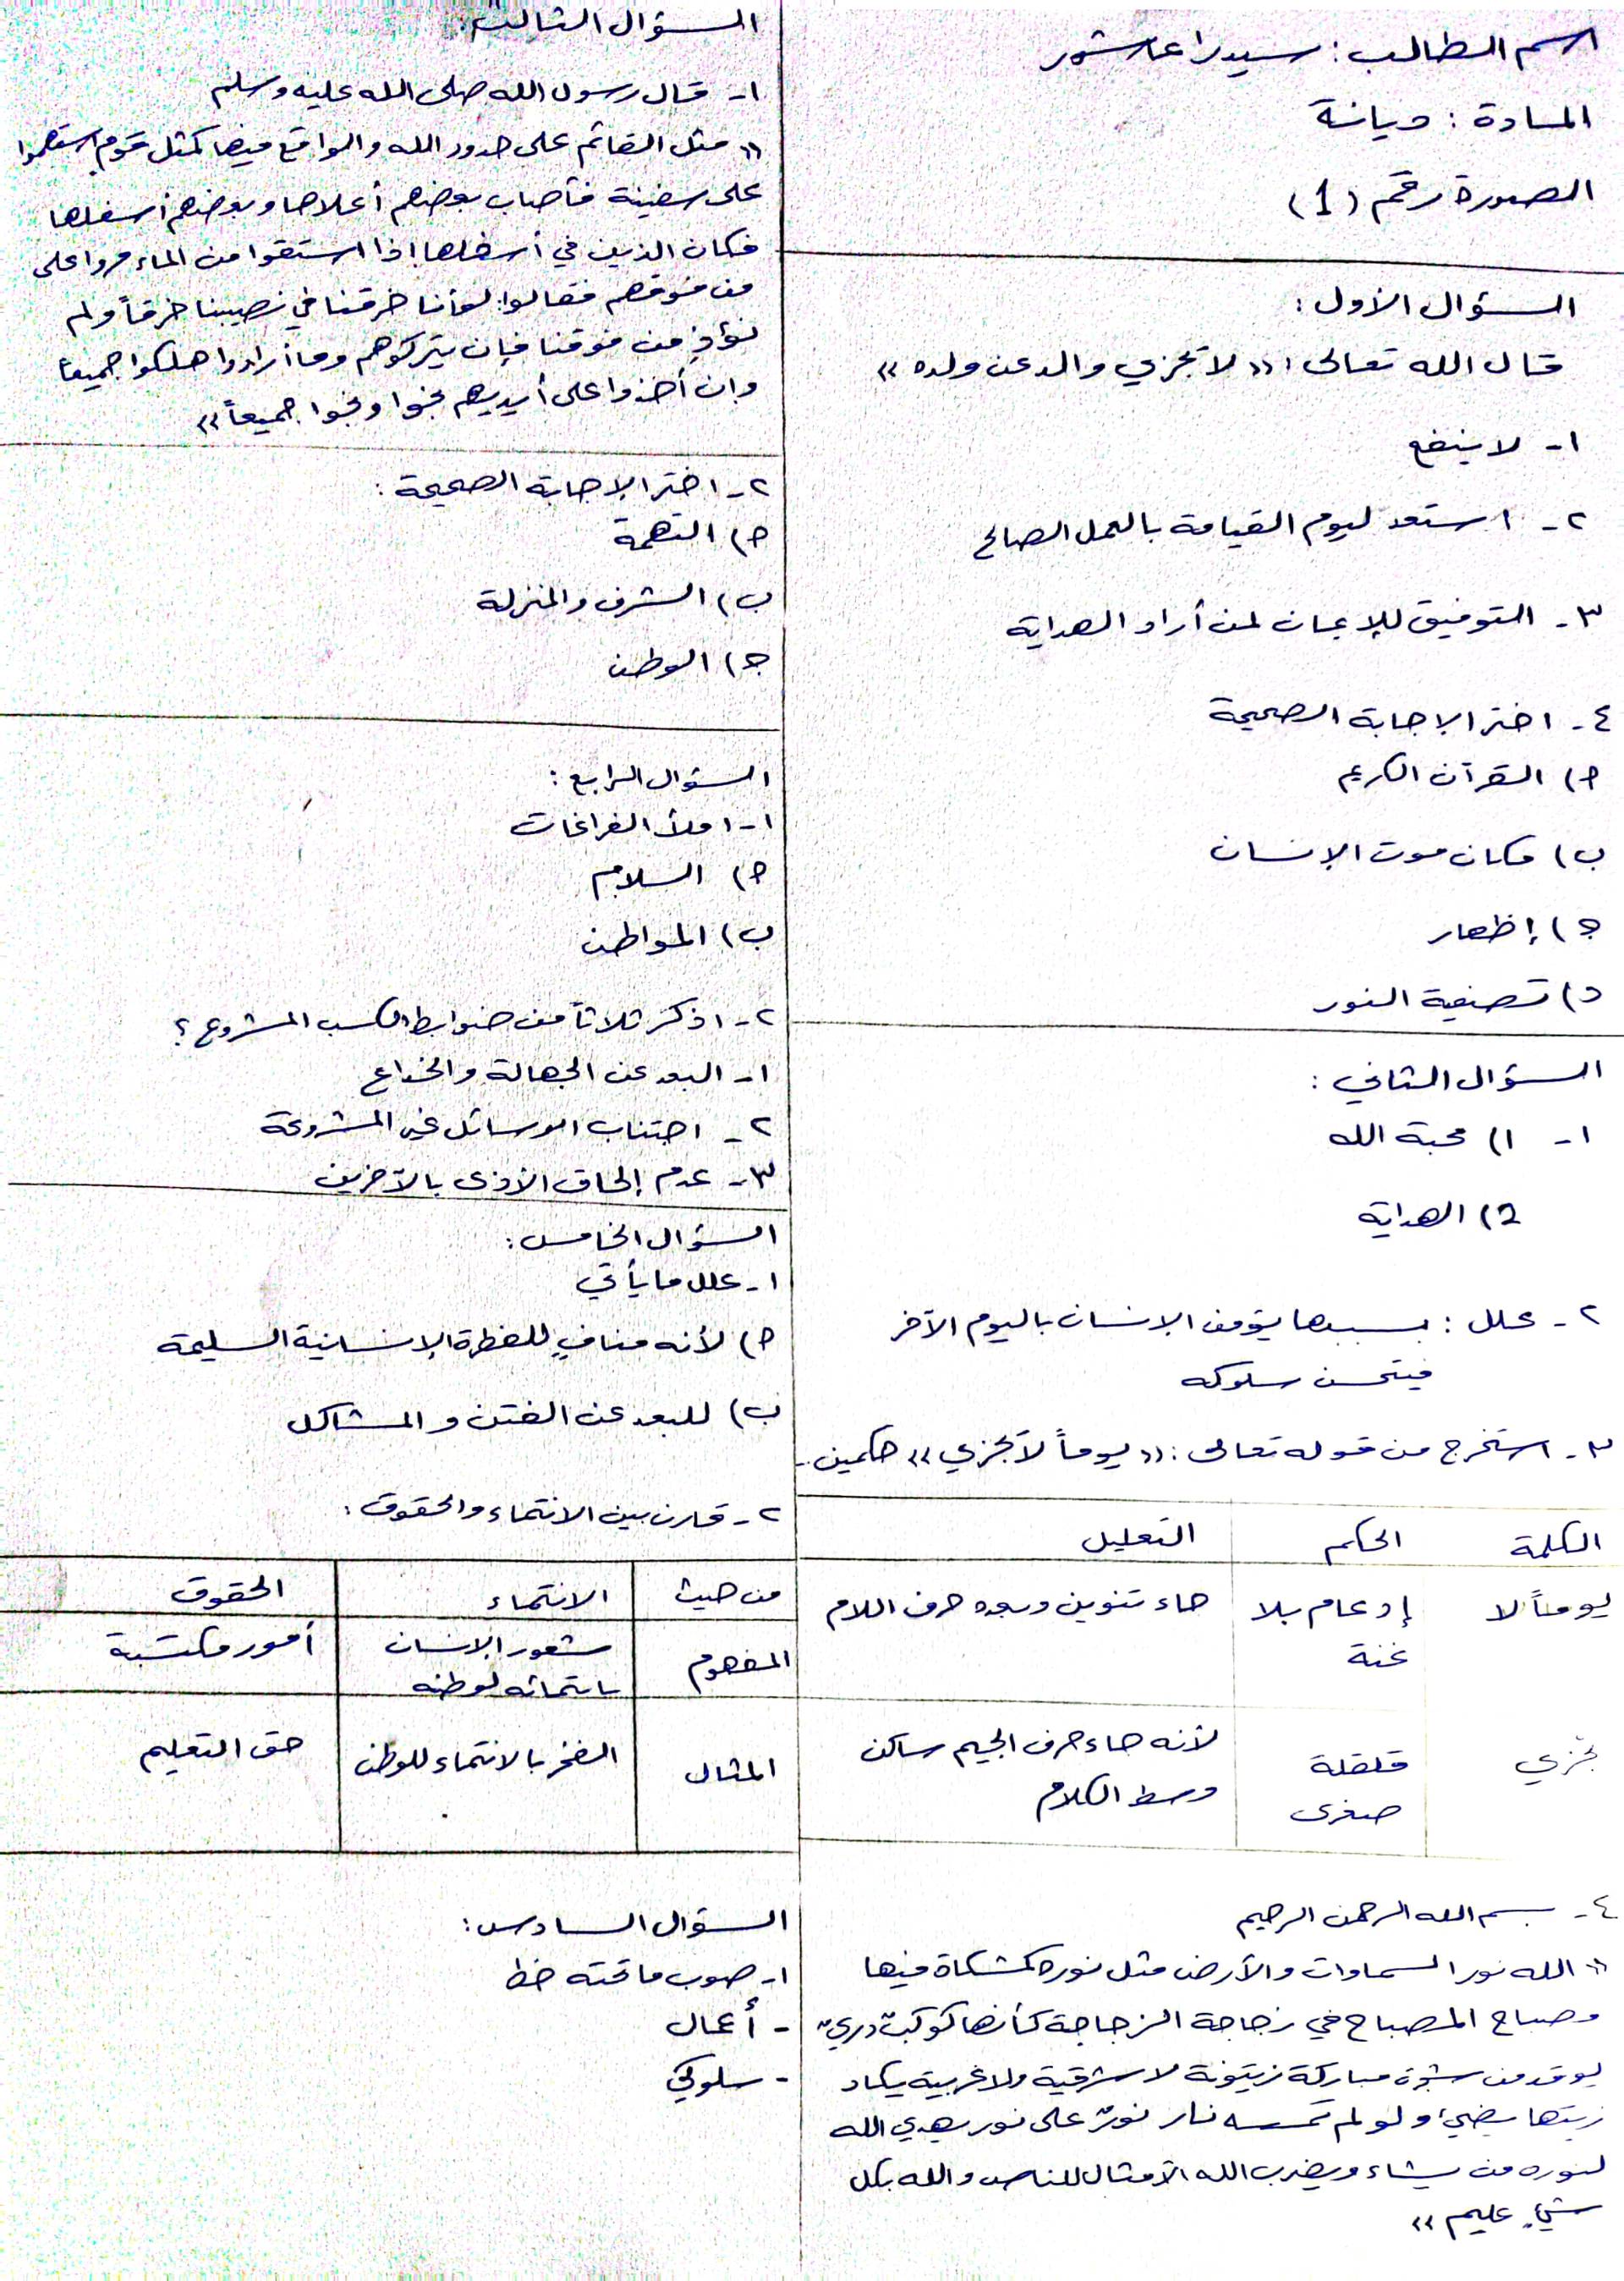 اسم الطالب : سيدرا عاشور
المادة : ديانة
الصورة رقم (1)
السؤال الأول :
قال الله تعالى : « لا تجزي والد عن ولده »
١- لا ينفع
٢- استعد ليوم القيامة بالعمل الصالح
٣- التوفيق للإيمان لمن أراد الهداية
٤- اختر الإجابة الصحيحة
٩) القرآن الكريم
ب) مكان موت الإنسان
ج) إظهار
د) تصفية النور
السؤال الثاني :
١- ١) محبة الله
2) الهداية
٢- علل : بسببها يؤمن الإنسان باليوم الآخر
فيتحسن سلوكه
٣- استخرج من قوله تعالى : « يوماً لا تجزي » حكمين .
الكلمة الحكم التعليل
يوماً لا إدغام بلا جاء تنوين وبعده حرف اللام
غنة
تجزي قلقلة لأنه جاء حرف الجيم ساكن
صغرى وسط الكلام
٤- بسم الله الرحمن الرحيم
« الله نور السماوات والأرض مثل نوره كمشكاة فيها
مصباح المصباح في زجاجة الزجاجة كأنها كوكبٌ دريٌ
يوقد من شجرة مباركة زيتونة لا شرقية ولا غربية يكاد
زيتها يضيء ولو لم تمسسه نار نورٌ على نور يهدي الله
لنوره من يشاء ويضرب الله الأمثال للناس والله بكل
شيءٍ عليم »
السؤال الثالث :
١- قال رسول الله صلى الله عليه وسلم
« مثل القائم على حدود الله والواقع فيها كمثل قوم استهموا
على سفينة فأصاب بعضهم أعلاها وبعضهم أسفلها
فكان الذين في أسفلها إذا استقوا من الماء مروا على
من فوقهم فقالوا : لو أنا خرقنا في نصيبنا خرقاً ولم
نؤذِ من فوقنا فإن يتركوهم وما أرادوا هلكوا جميعاً
وإن أخذوا على أيديهم نجوا ونجوا جميعاً »
٢- اختر الإجابة الصحيحة :
٩) التهمة
ب) الشرف والمنزلة
ج) الوطن
السؤال الرابع :
١- املأ الفراغات
٩) السلام
ب) المواطن
٢- اذكر ثلاثاً من ضوابط الكسب المشروع ؟
١- البعد عن الجهالة والخداع
٢- اجتناب الوسائل غير المشروعة
٣- عدم إلحاق الأذى بالآخرين
السؤال الخامس :
١- علل ما يأتي
٩) لأنه منافٍ للفطرة الإنسانية السليمة
ب) للبعد عن الفتن والمشاكل
٢- قارن بين الانتماء والحقوق :
من حيث الانتماء الحقوق
المفهوم شعور الإنسان أمور مكتسبة
بانتمائه لوطنه
المثال الفخر بالانتماء للوطن حق التعليم
السؤال السادس :
١- صوب ما تحته خط
- أعمال
- سلوكي